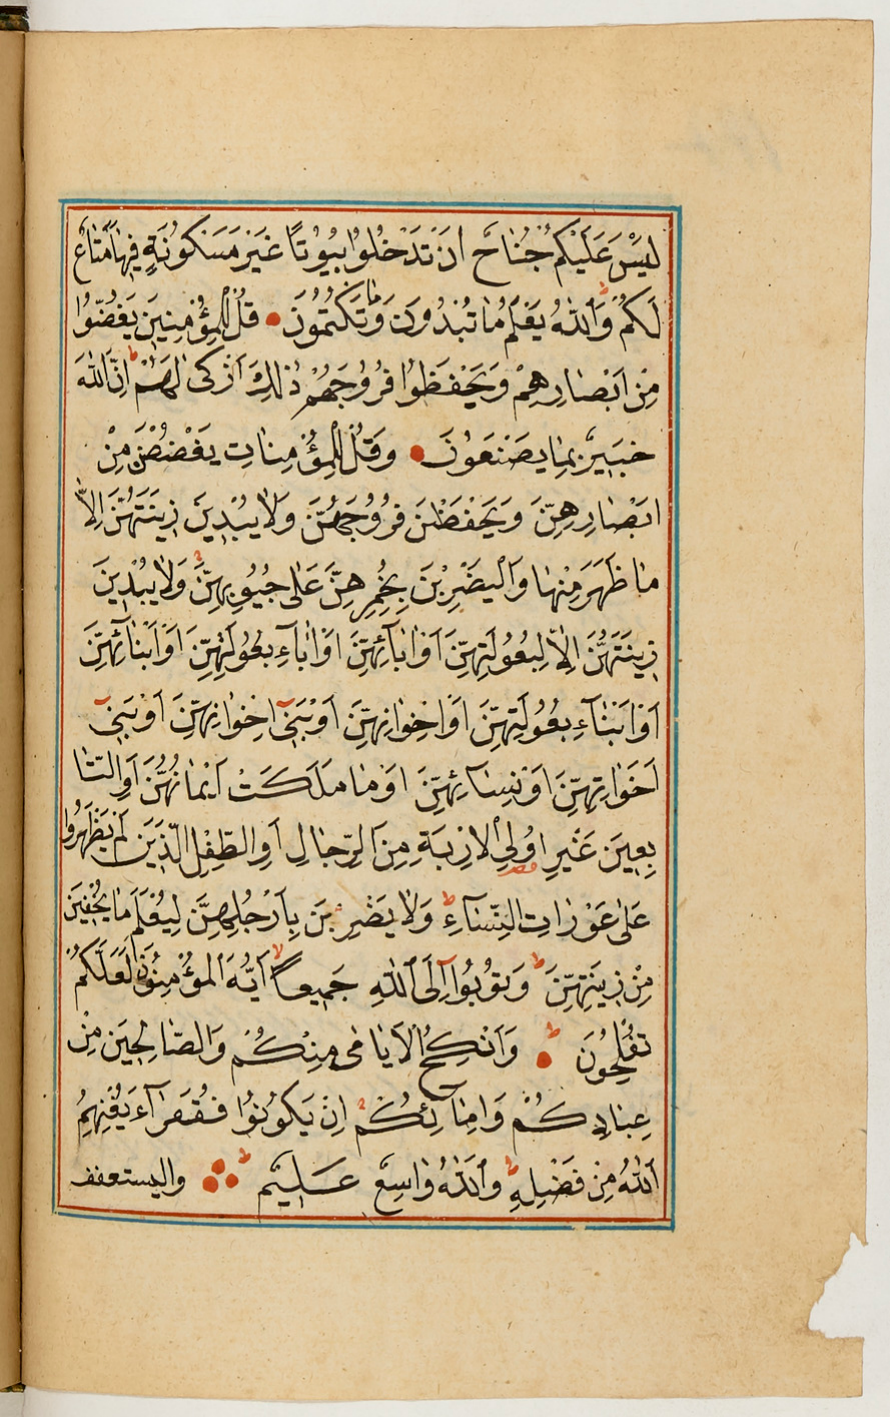 لَيْسَ عَلَيْكُمْ جُنَاحٌ اَنْ تَدْخُلُوا بُيُوتًا غَيْرَ مَسْكُونَةٍ فِيهَا مَتَاعٌ
لَكُمْ وَاللّٰهُ يَعْلَمُ مَا تُبْدُونَ وَمَا تَكْتُمُونَ قُلْ لِلْمُؤْمِنِينَ يَغُضُّوا
مِنْ اَبْصَارِهِمْ وَيَحْفَظُوا فُرُوجَهُمْ ذٰلِكَ اَزْكٰى لَهُمْ اِنَّ اللّٰهَ
خَبِيرٌ بِمَا يَصْنَعُونَ وَقُلْ لِلْمُؤْمِنَاتِ يَغْضُضْنَ مِنْ
اَبْصَارِهِنَّ وَيَحْفَظْنَ فُرُوجَهُنَّ وَلَا يُبْدِينَ زِينَتَهُنَّ اِلَّا
مَا ظَهَرَ مِنْهَا وَالْيَضْرِبْنَ بِخُمُرِهِنَّ عَلٰى جُيُوبِهِنَّ وَلَا يُبْدِينَ
زِينَتَهُنَّ اِلَّا لِبُعُولَتِهِنَّ اَوْ اٰبَائِهِنَّ اَوْ اٰبَآءِ بُعُولَتِهِنَّ اَوْ اَبْنَائِهِنَّ
اَوْ اَبْنَآءِ بُعُولَتِهِنَّ اَوْ اِخْوَانِهِنَّ اَوْ بَنِىٓ اِخْوَانِهِنَّ اَوْ بَنِىٓ
اَخَوَاتِهِنَّ اَوْ نِسَآئِهِنَّ اَوْ مَا مَلَكَتْ اَيْمَانُهُنَّ اَوِ التَّا
بِعِينَ غَيْرِ اُولِى الْاِرْبَةِ مِنَ الرِّجَالِ اَوِ الطِّفْلِ الَّذِينَ لَمْ يَظْهَرُوا
عَلٰى عَوْرَاتِ النِّسَآءِ وَلَا يَضْرِبْنَ بِاَرْجُلِهِنَّ لِيُعْلَمَ مَا يُخْفِينَ
مِنْ زِينَتِهِنَّ وَتُوبُوٓا اِلَى اللّٰهِ جَمِيعًا اَيُّهَ الْمُؤْمِنُونَ لَعَلَّكُمْ
تُفْلِحُونَ وَاَنْكِحُ الْاَيَامٰى مِنْكُمْ وَالصَّالِحِينَ مِنْ
عِبَادِكُمْ وَاِمَائِكُمْ اِنْ يَكُونُوا فُقَرَآءَ يُغْنِهِمُ
اللّٰهُ مِنْ فَضْلِهِ وَاللّٰهُ وَاسِعٌ عَلِيمٌ
واليستعفف